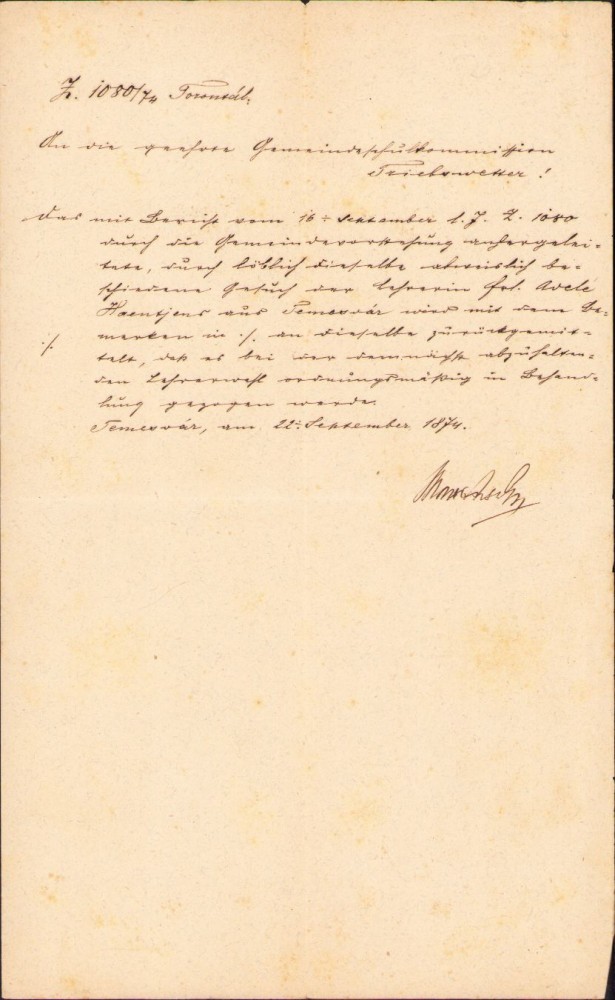 Z. 1080/74 Torontál.
An die geehrte Gemeindeschulkommission
Triebswetter!
Das mit Bericht vom 16ten September l. J. Z. 1080
durch die Gemeindevorstehung anhergelei-
tete, durch löblich dieselbe abweislich be-
schiedene Gesuch der Lehrerin Frl. Adele
Haentjens aus Temesvár wird mit dem Be-
merken in ./. an dieselbe zurückgemit-
./.
telt, daß es bei der demnächst abzuhalten-
den Lehrerwahl ordnungsmäßig in Behand-
lung gezogen werde.
Temesvár, am 22ten September 1874.